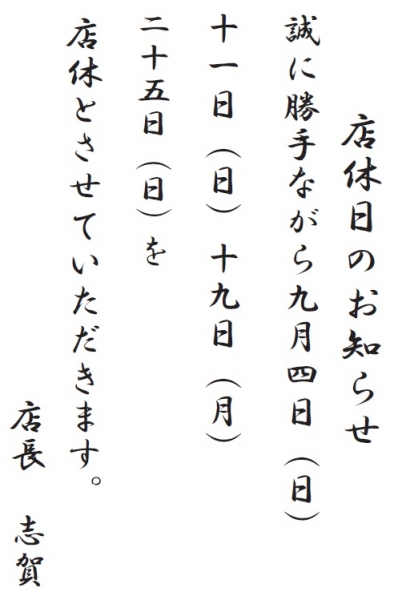 店休日のお知らせ
誠に勝手ながら九月四日（日）
十一日（日）十九日（月）
二十五日（日）を
店休とさせていただきます。
店長　志賀